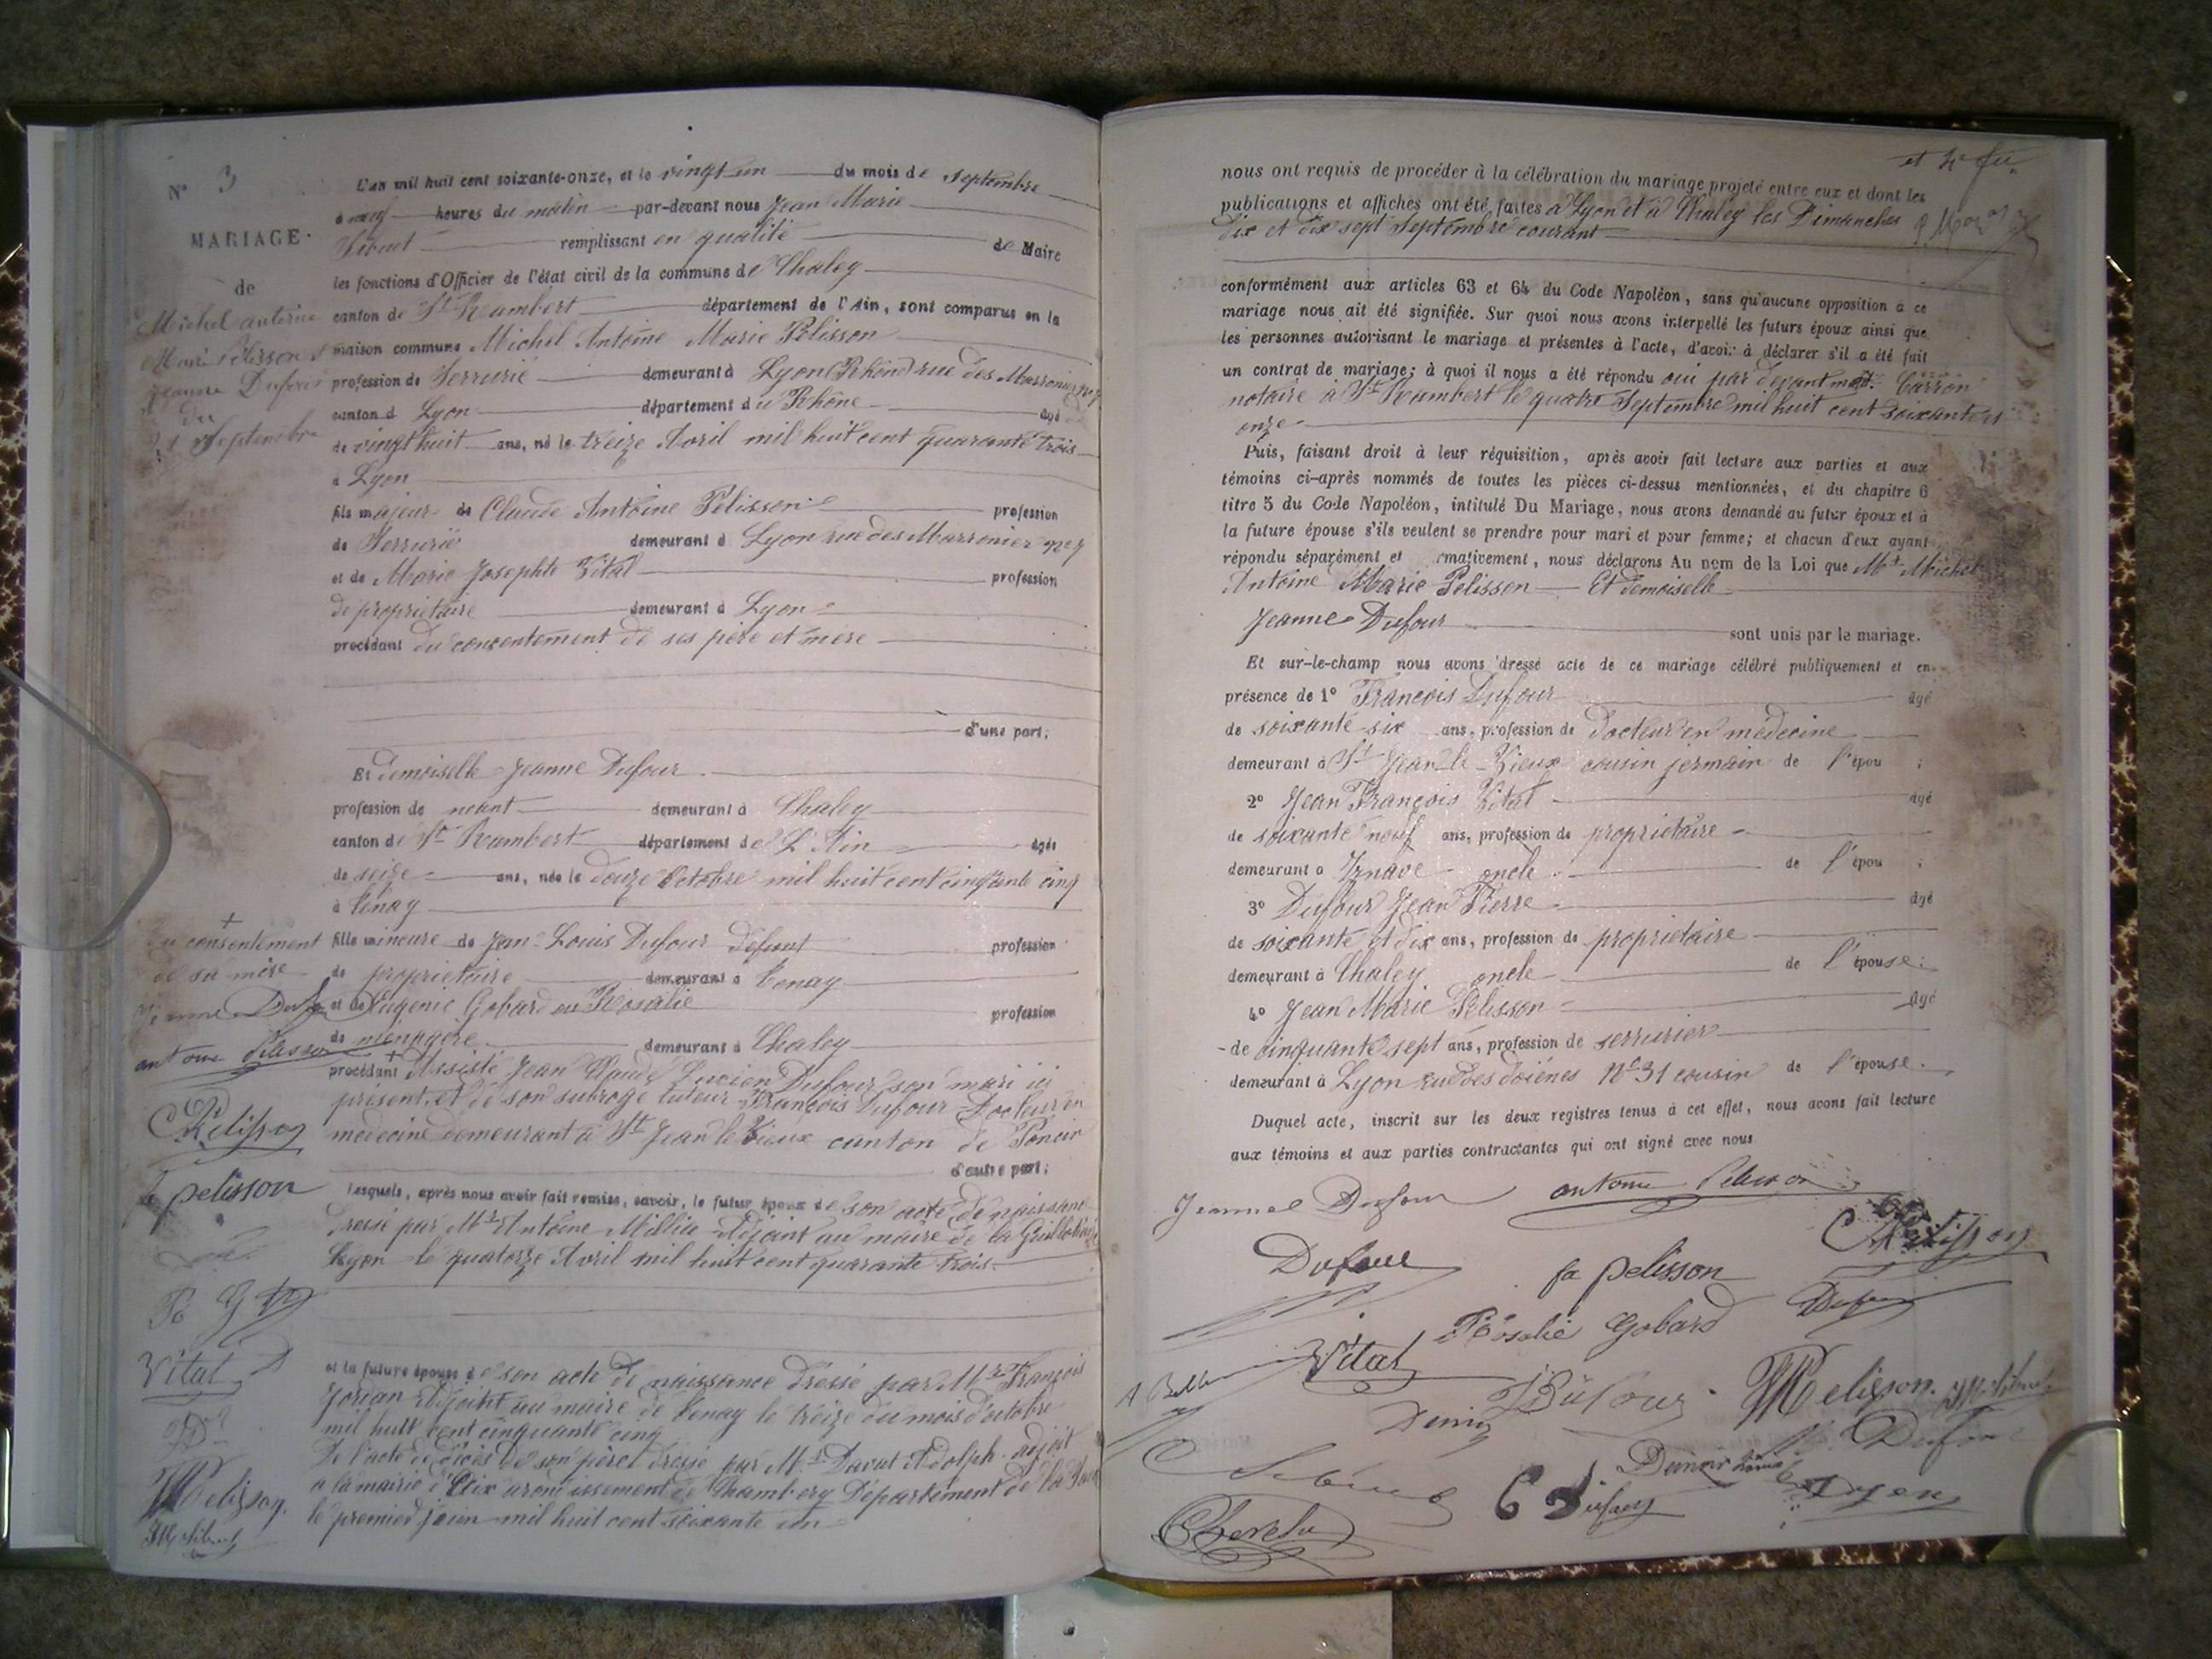 N° 3
MARIAGE
de
Michel antoine
Marie Pelisson &
Jeanne Dufour
du
21 Septembre
L'an mil huit cent soixante-onze, et le vingt un du mois de Septembre
à neuf heures du matin par-devant nous Jean Marie
remplissant en qualité de Maire
les fonctions d'Officier de l'état civil de la commune de Chaley
canton de St Rambert département de l'Ain, sont comparus en la
maison commune Michel Antoine Marie Pelisson
profession de Serrurié demeurant à Lyon (Rhône) rue des Marronier n° 7
canton d Lyon département du Rhône âgé
de vingt huit ans, né le treize Avril mil huit cent quarante trois
à Lyon
fils majeur de Claude Antoine Pelisson profession
de Serrurié demeurant à Lyon rue des Marronier n° 7
et de Marie Josephte Vital profession
de propriétaire demeurant à Lyon
procédant du concentement de ses père et mère
d'une part;
Et demoiselle Jeanne Dufour
profession de néant demeurant à Chaley
canton de St Rambert département de L'Ain âgée
de seize ans, née le douze Octobre mil huit cent cinquante cinq
à Tenay
fille mineure de Jean Louis Dufour défunt profession
de propriétaire demeurant à Tenay
et de Eugenie Gobard ou Rosalie profession
de ménagère demeurant à Chaley
procédant + Assisté Jean Claude Lucien Dufour son mari ici
présent, et de son subrogé tuteur François Dufour Docteur en
médecine demeurant à St Jean le Vieux canton de Poncin
d'autre part;
+
du consentement
de sa mère
Jeanne Dufour
antoine Pelisson
CPelisson
fa pelisson
Vital
JMPelisson
lesquels, après nous avoir fait remise, savoir, le futur époux de son acte de naissance
dressé par Mr Antoine Millia Adjoint au maire de la Guillotière
Lyon le quatorze Avril mil huit cent quarante trois
et la future épouse de son acte de naissance dressé par Mr François
Adjoint au maire de Tenay le treize du mois d'octobre
mil huit cent cinquante cinq
De l'acte de décès de son père dressé par Mr Davat Adolph. adjoit
a la mairie d'Aix arondissement de Chambery Département de la
le premier juin mil huit cent soixante un
nous ont requis de procéder à la célébration du mariage projeté entre eux et dont les
publications et affiches ont été faites à Lyon et à Chaley les Dimanches
dix et dix sept Septembre courant
conformément aux articles 63 et 64 du Code Napoléon, sans qu'aucune opposition à ce
mariage nous ait été signifiée. Sur quoi nous avons interpellé les futurs époux ainsi que
les personnes autorisant le mariage et présentes à l'acte, d'avoir à déclarer s'il a été fait
un contrat de mariage; à quoi il nous a été répondu oui par devant Carron
notaire à St Rambert le quatre Septembre mil huit cent soixante et
onze
Puis, faisant droit à leur réquisition, après avoir fait lecture aux parties et aux
témoins ci-après nommés de toutes les pièces ci-dessus mentionnées, et du chapitre 6
titre 5 du Code Napoléon, intitulé Du Mariage, nous avons demandé au futur époux et à
la future épouse s'ils veulent se prendre pour mari et pour femme; et chacun d'eux ayant
répondu séparément et mativement, nous déclarons Au nom de la Loi que Mr Michel
Antoine Marie Pelisson Et demoiselle
Jeanne Dufour sont unis par le mariage.
Et sur-le-champ nous avons dressé acte de ce mariage célébré publiquement et en
présence de 1° François Dufour âgé
de soixante six ans, profession de docteur en médecine
demeurant à St Jean le Vieux cousin jermain de l'épou ;
2° Jean François Vital âgé
de soixante neuf ans, profession de propriétaire
demeurant à oncle de l'épou ;
3° Dufour Jean Pierre âgé
de soixante et dix ans, profession de propriétaire
demeurant à Chaley oncle de l'épouse;
4° Jean Marie Pelisson âgé
de cinquante sept ans, profession de serrurier
demeurant à Lyon N° 31 cousin de l'épouse.
Duquel acte, inscrit sur les deux registres tenus à cet effet, nous avons fait lecture
aux témoins et aux parties contractantes qui ont signé avec nous
Jeanne Dufour antoine Pelisson
Dufour fa pelisson CPelisson
Rosalie Gobard Dufour
Vital
JMPelisson
Dufour